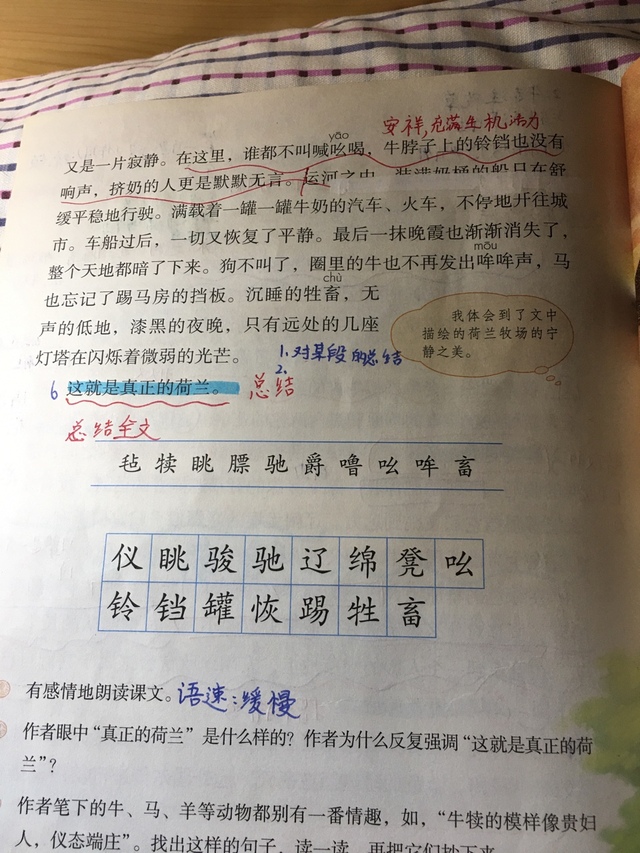 安祥,充满生机活力
yāo
又是一片寂静。在这里，谁都不叫喊吆喝，牛脖子上的铃铛也没有
响声，挤奶的人更是默默无言。运河之中，装满奶桶的船只在舒
缓平稳地行驶。满载着一罐一罐牛奶的汽车、火车，不停地开往城
市。车船过后，一切又恢复了平静。最后一抹晚霞也渐渐消失了，
mōu
整个天地都暗了下来。狗不叫了，圈里的牛也不再发出哞哞声，马
chù
也忘记了踢马房的挡板。沉睡的牲畜，无
声的低地，漆黑的夜晚，只有远处的几座
灯塔在闪烁着微弱的光芒。
我体会到了文中
描绘的荷兰牧场的宁
静之美。
1.对某段的总结
2.
6 这就是真正的荷兰。 总结
总结全文
毡 犊 眺 膘 驰 爵 噜 吆 哞 畜
仪 眺 骏 驰 辽 绵 凳 吆
铃 铛 罐 恢 踢 牲 畜
有感情地朗读课文。语速:缓慢
作者眼中“真正的荷兰”是什么样的？作者为什么反复强调“这就是真正的荷
兰”？
作者笔下的牛、马、羊等动物都别有一番情趣，如，“牛犊的模样像贵妇
人，仪态端庄”。找出这样的句子，读一读，再把它们抄下来。